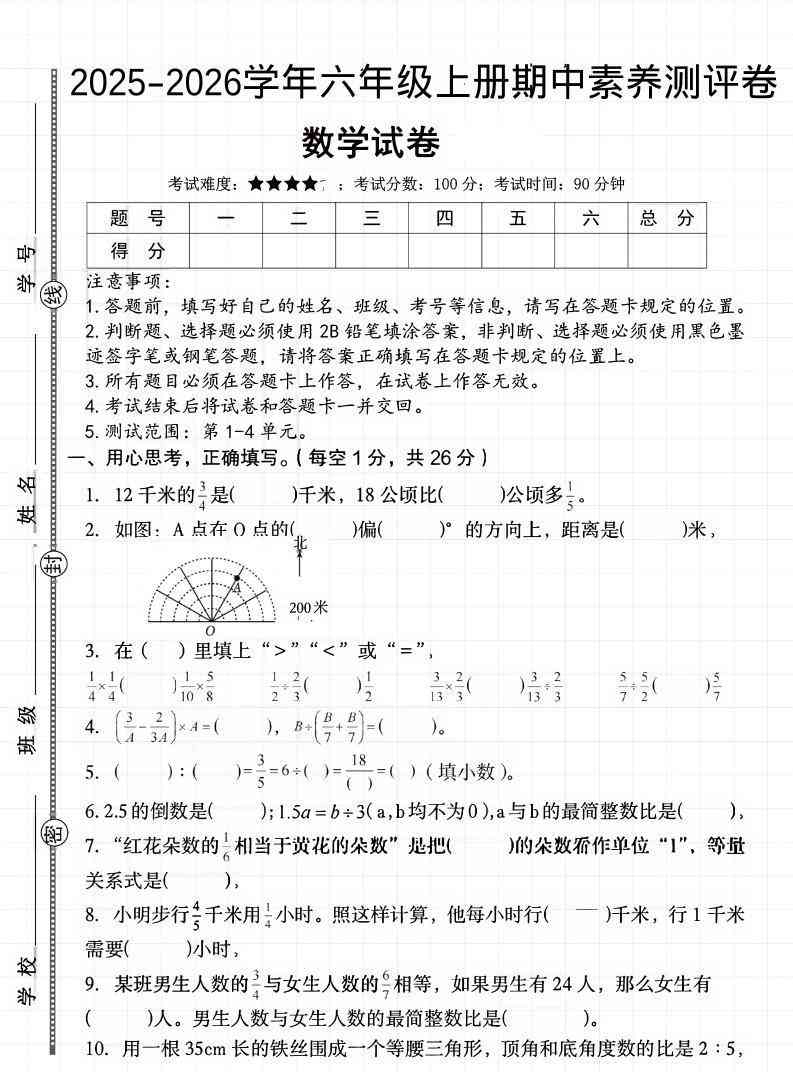 2025-2026学年六年级上册期中素养测评卷
数学试卷
考试难度：★★★★；考试分数：100 分；考试时间：90 分钟
题 号 一 二 三 四 五 六 总 分
得 分
注意事项：
1. 答题前，填写好自己的姓名、班级、考号等信息，请写在答题卡规定的位置。
2. 判断题、选择题必须使用 2B 铅笔填涂答案，非判断、选择题必须使用黑色墨
迹签字笔或钢笔答题，请将答案正确填写在答题卡规定的位置上。
3. 所有题目必须在答题卡上作答，在试卷上作答无效。
4. 考试结束后将试卷和答题卡一并交回。
5. 测试范围：第 1-4 单元。
一、用心思考，正确填写。（每空 1 分，共 26 分）
1. 12 千米的 3/4 是(    )千米，18 公顷比(    )公顷多 1/5。
2. 如图：A 点在 O 点的(    )偏(    )° 的方向上，距离是(    )米，
北
A
200 米
O
3. 在（  ）里填上“＞”“＜”或“＝”，
1/4×1/4(    )1/10×5/8  1/2÷2/3(    )1/2  3/13×2/3(    )3/13÷2/3  5/7÷5/2(    )5/7
4. (3/A-2/3A)×A=(    )，B÷(B/7+B/7)=(    )。
5. (    )：(    )=3/5=6÷(  )=18/(  )=(  )（填小数）。
6. 2.5 的倒数是(    )；1.5a = b÷3( a,b 均不为 0 ),a 与 b 的最简整数比是(    )，
7. “红花朵数的 1/6 相当于黄花的朵数”是把(    )的朵数看作单位“1”，等量
关系式是(    )，
8. 小明步行 4/5 千米用 1/4 小时。照这样计算，他每小时行(    )千米，行 1 千米
需要(    )小时，
9. 某班男生人数的 3/4 与女生人数的 6/7 相等，如果男生有 24 人，那么女生有
(    )人。男生人数与女生人数的最简整数比是(    )。
10. 用一根 35cm 长的铁丝围成一个等腰三角形，顶角和底角度数的比是 2：5，
学号
线
姓名
封
班级
密
学校